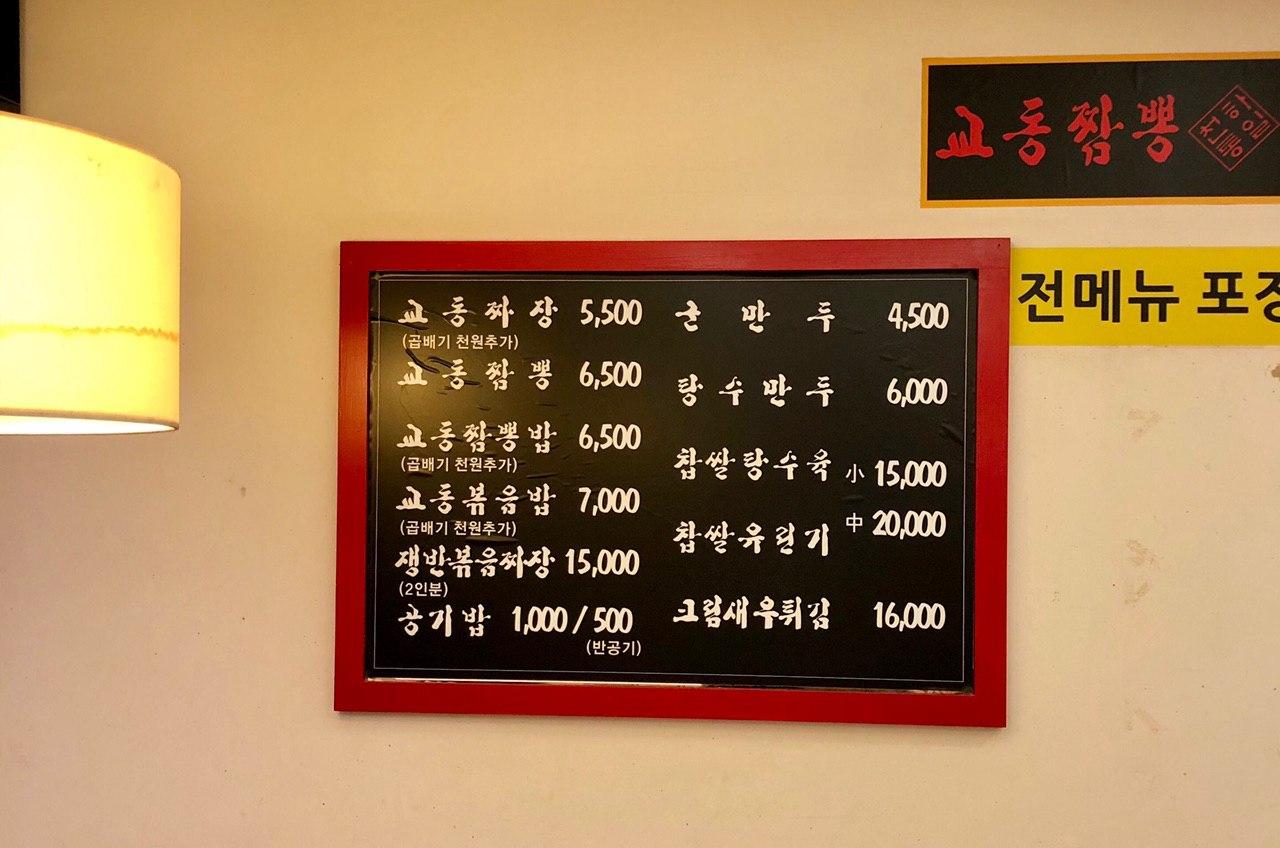 교동짬뽕
전통
전메뉴 포장
교동짜장 5,500
(곱배기 천원추가)
교동짬뽕 6,500
교동짬뽕밥 6,500
(곱배기 천원추가)
교동볶음밥 7,000
(곱배기 천원추가)
쟁반볶음짜장 15,000
(2인분)
공기밥 1,000 / 500
(반공기)
군만두 4,500
탕수만두 6,000
찹쌀탕수육 小 15,000
찹쌀유린기 中 20,000
크림새우튀김 16,000